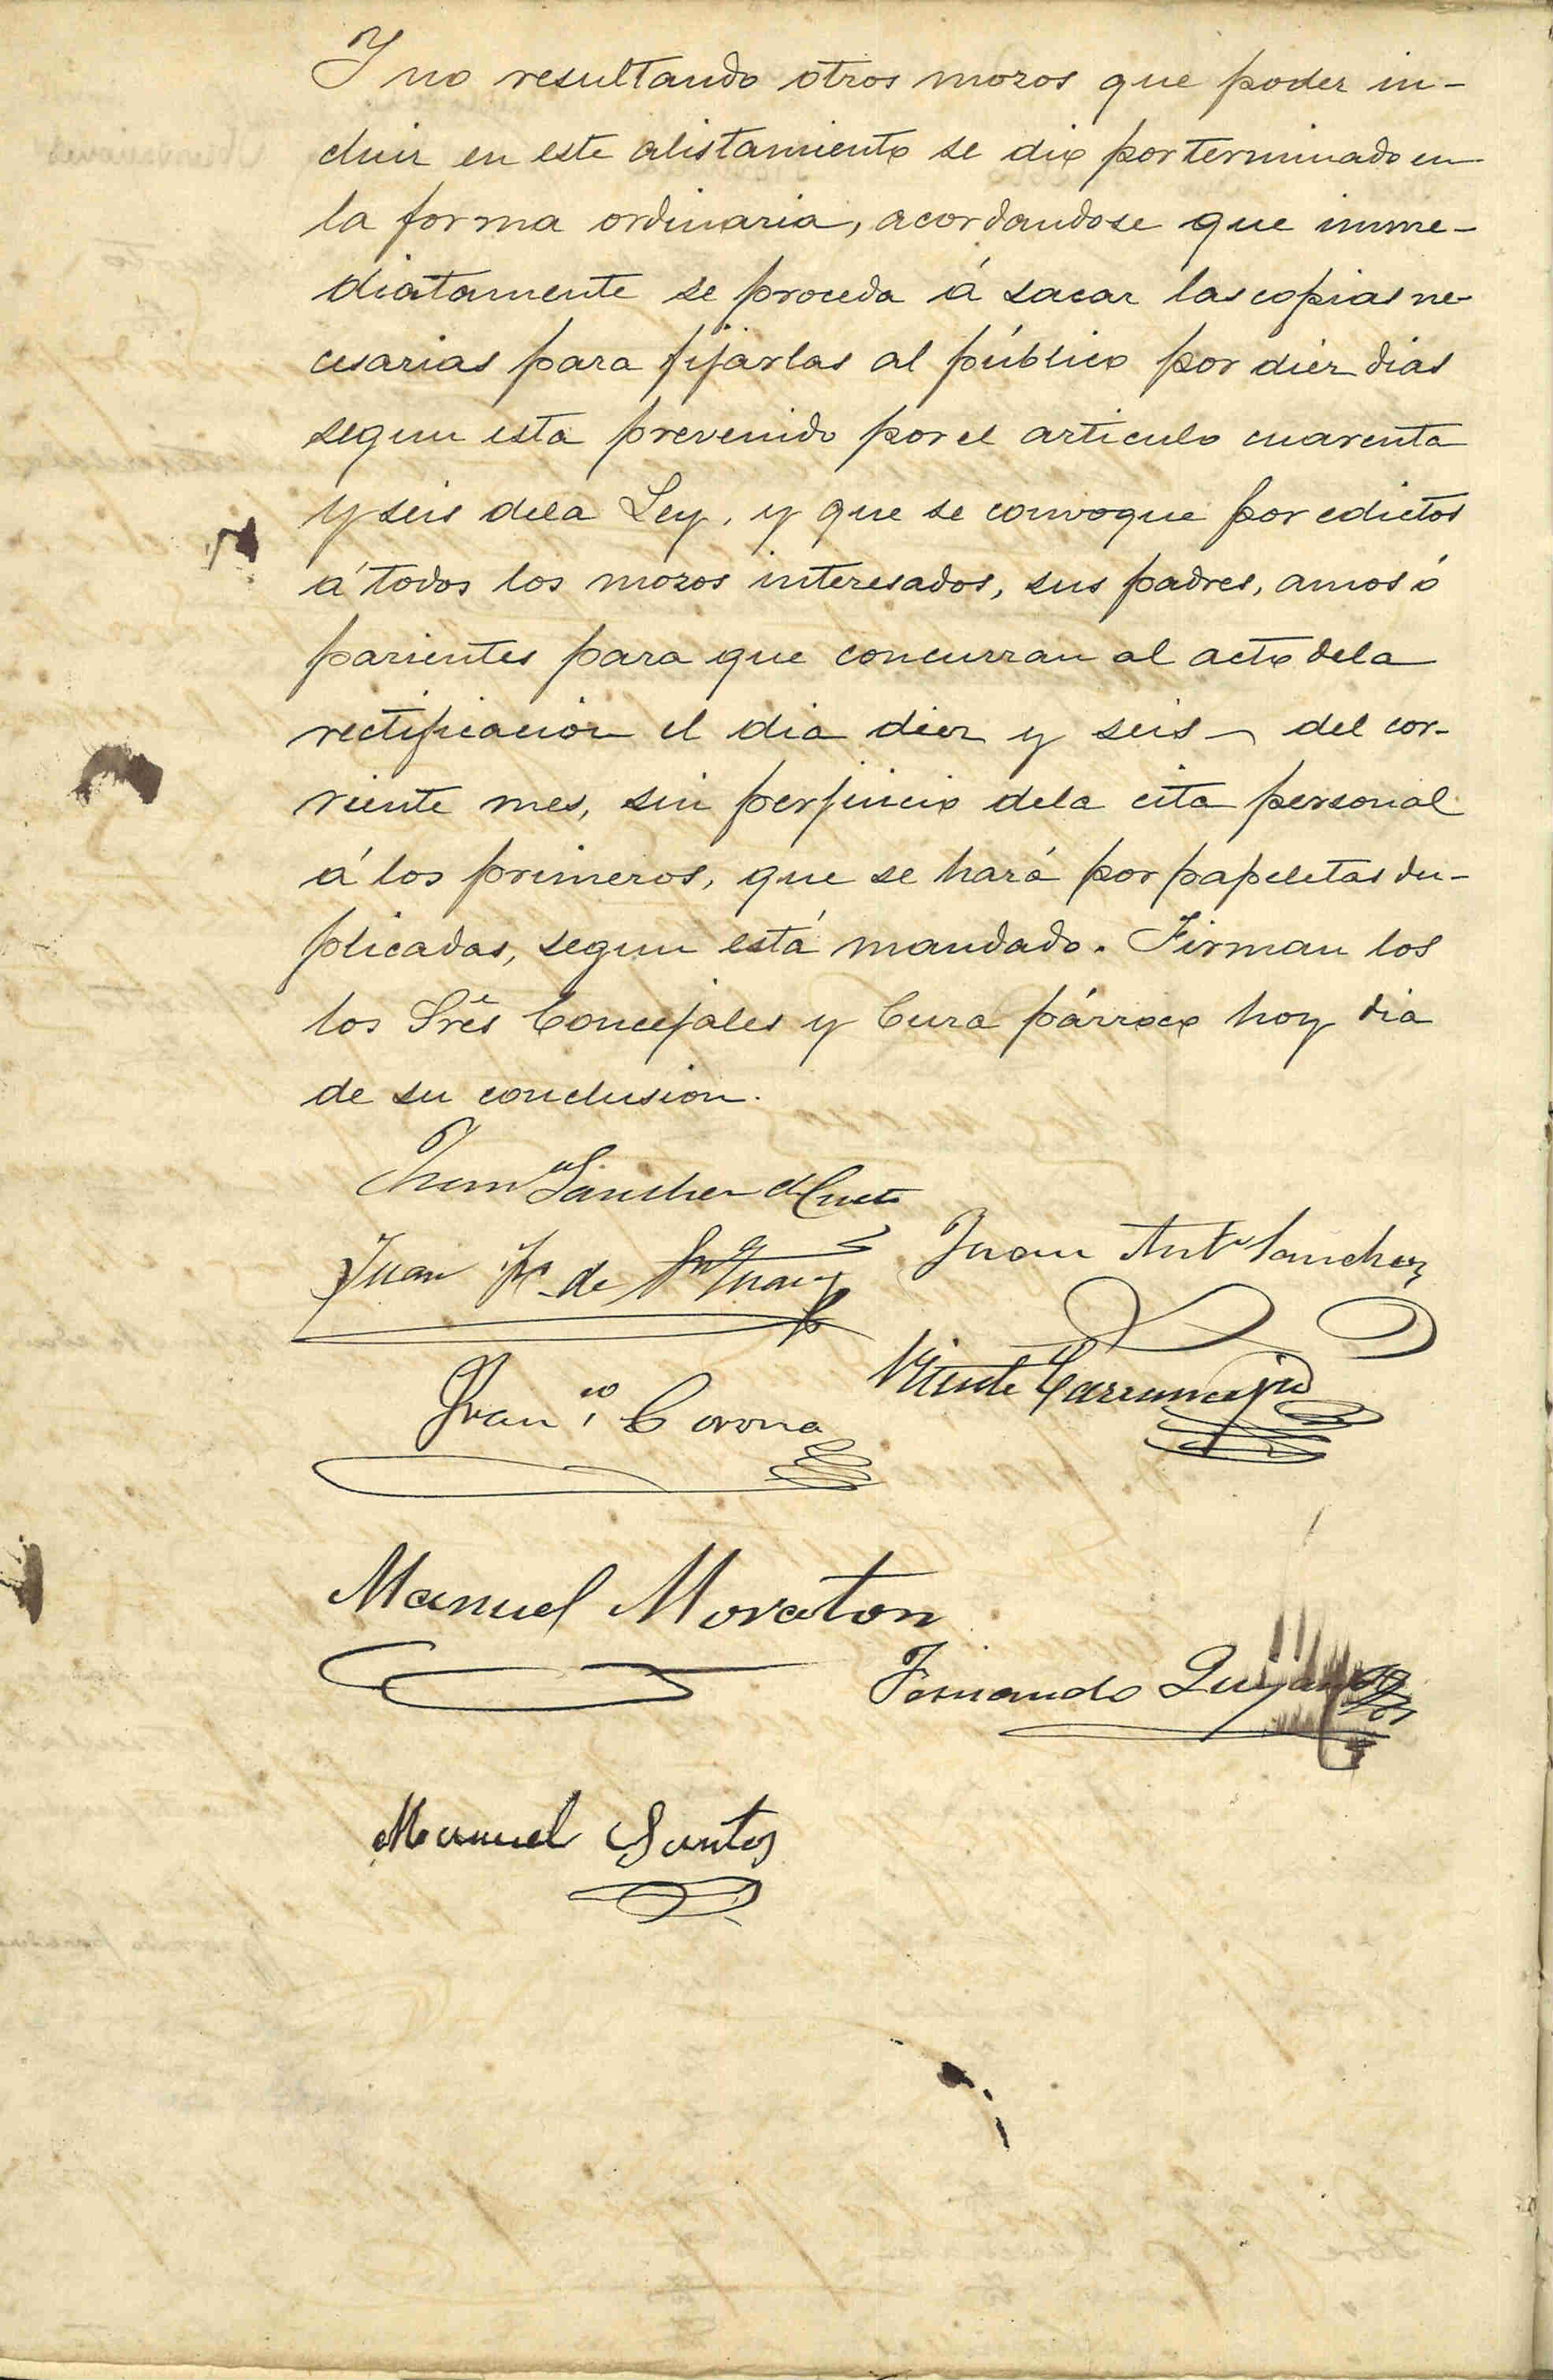 Y no resultando otros mozos que poder in-
cluir en este alistamiento se dio por terminado en
la forma ordinaria, acordandose que inme-
diatamente se proceda á sacar las copias ne-
cesarias para fijarlas al público por diez dias
segun esta prevenido por el articulo cuarenta
y seis dela Ley, y que se convoque por edictos
á todos los mozos interesados, sus padres, amos ó
parientes para que concurran al acto dela
rectificacion el dia diez y seis del cor-
riente mes, sin perjuicio dela cita personal
á los primeros, que se hará por papeletas du-
plicadas, segun está mandado. Firman los
los Sres Concejales y Cura párroco hoy dia
de su conclusion.
Sanchez
Juan de Sn Juan
Juan Antº Sanchez
Franco Corona
Vicente
Manuel Moraton
Fernando
Manuel Santos